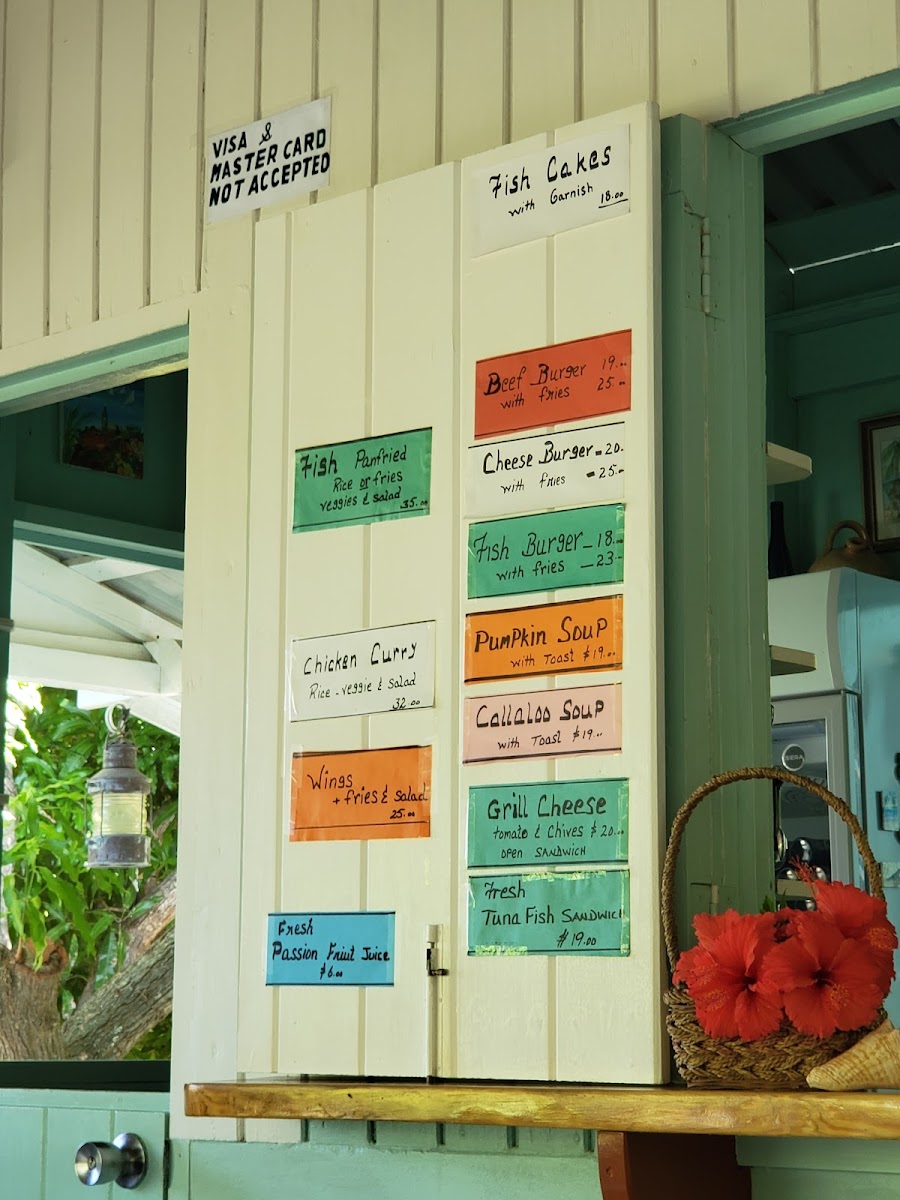 VISA &
MASTER CARD
NOT ACCEPTED
Fish Cakes
with Garnish 18.00
Beef Burger 19...
with fries 25 -
Cheese Burger - 20.-
with fries - 25.-
Fish Burger - 18...
with fries - 23.-
Pumpkin Soup
with Toast $19...
Callaloo Soup
with Toast $19..
Grill Cheese
tomato & Chives $20...
OPEN SANDWICH
Fresh
Tuna Fish SANDWICH
$19.00
Fish Panfried
Rice or fries
veggies & salad
35.00
Chicken Curry
Rice - veggie & Salad
32.00
Wings
+ fries & Salad
25.00
Fresh
Passion Fruit Juice
$6.00